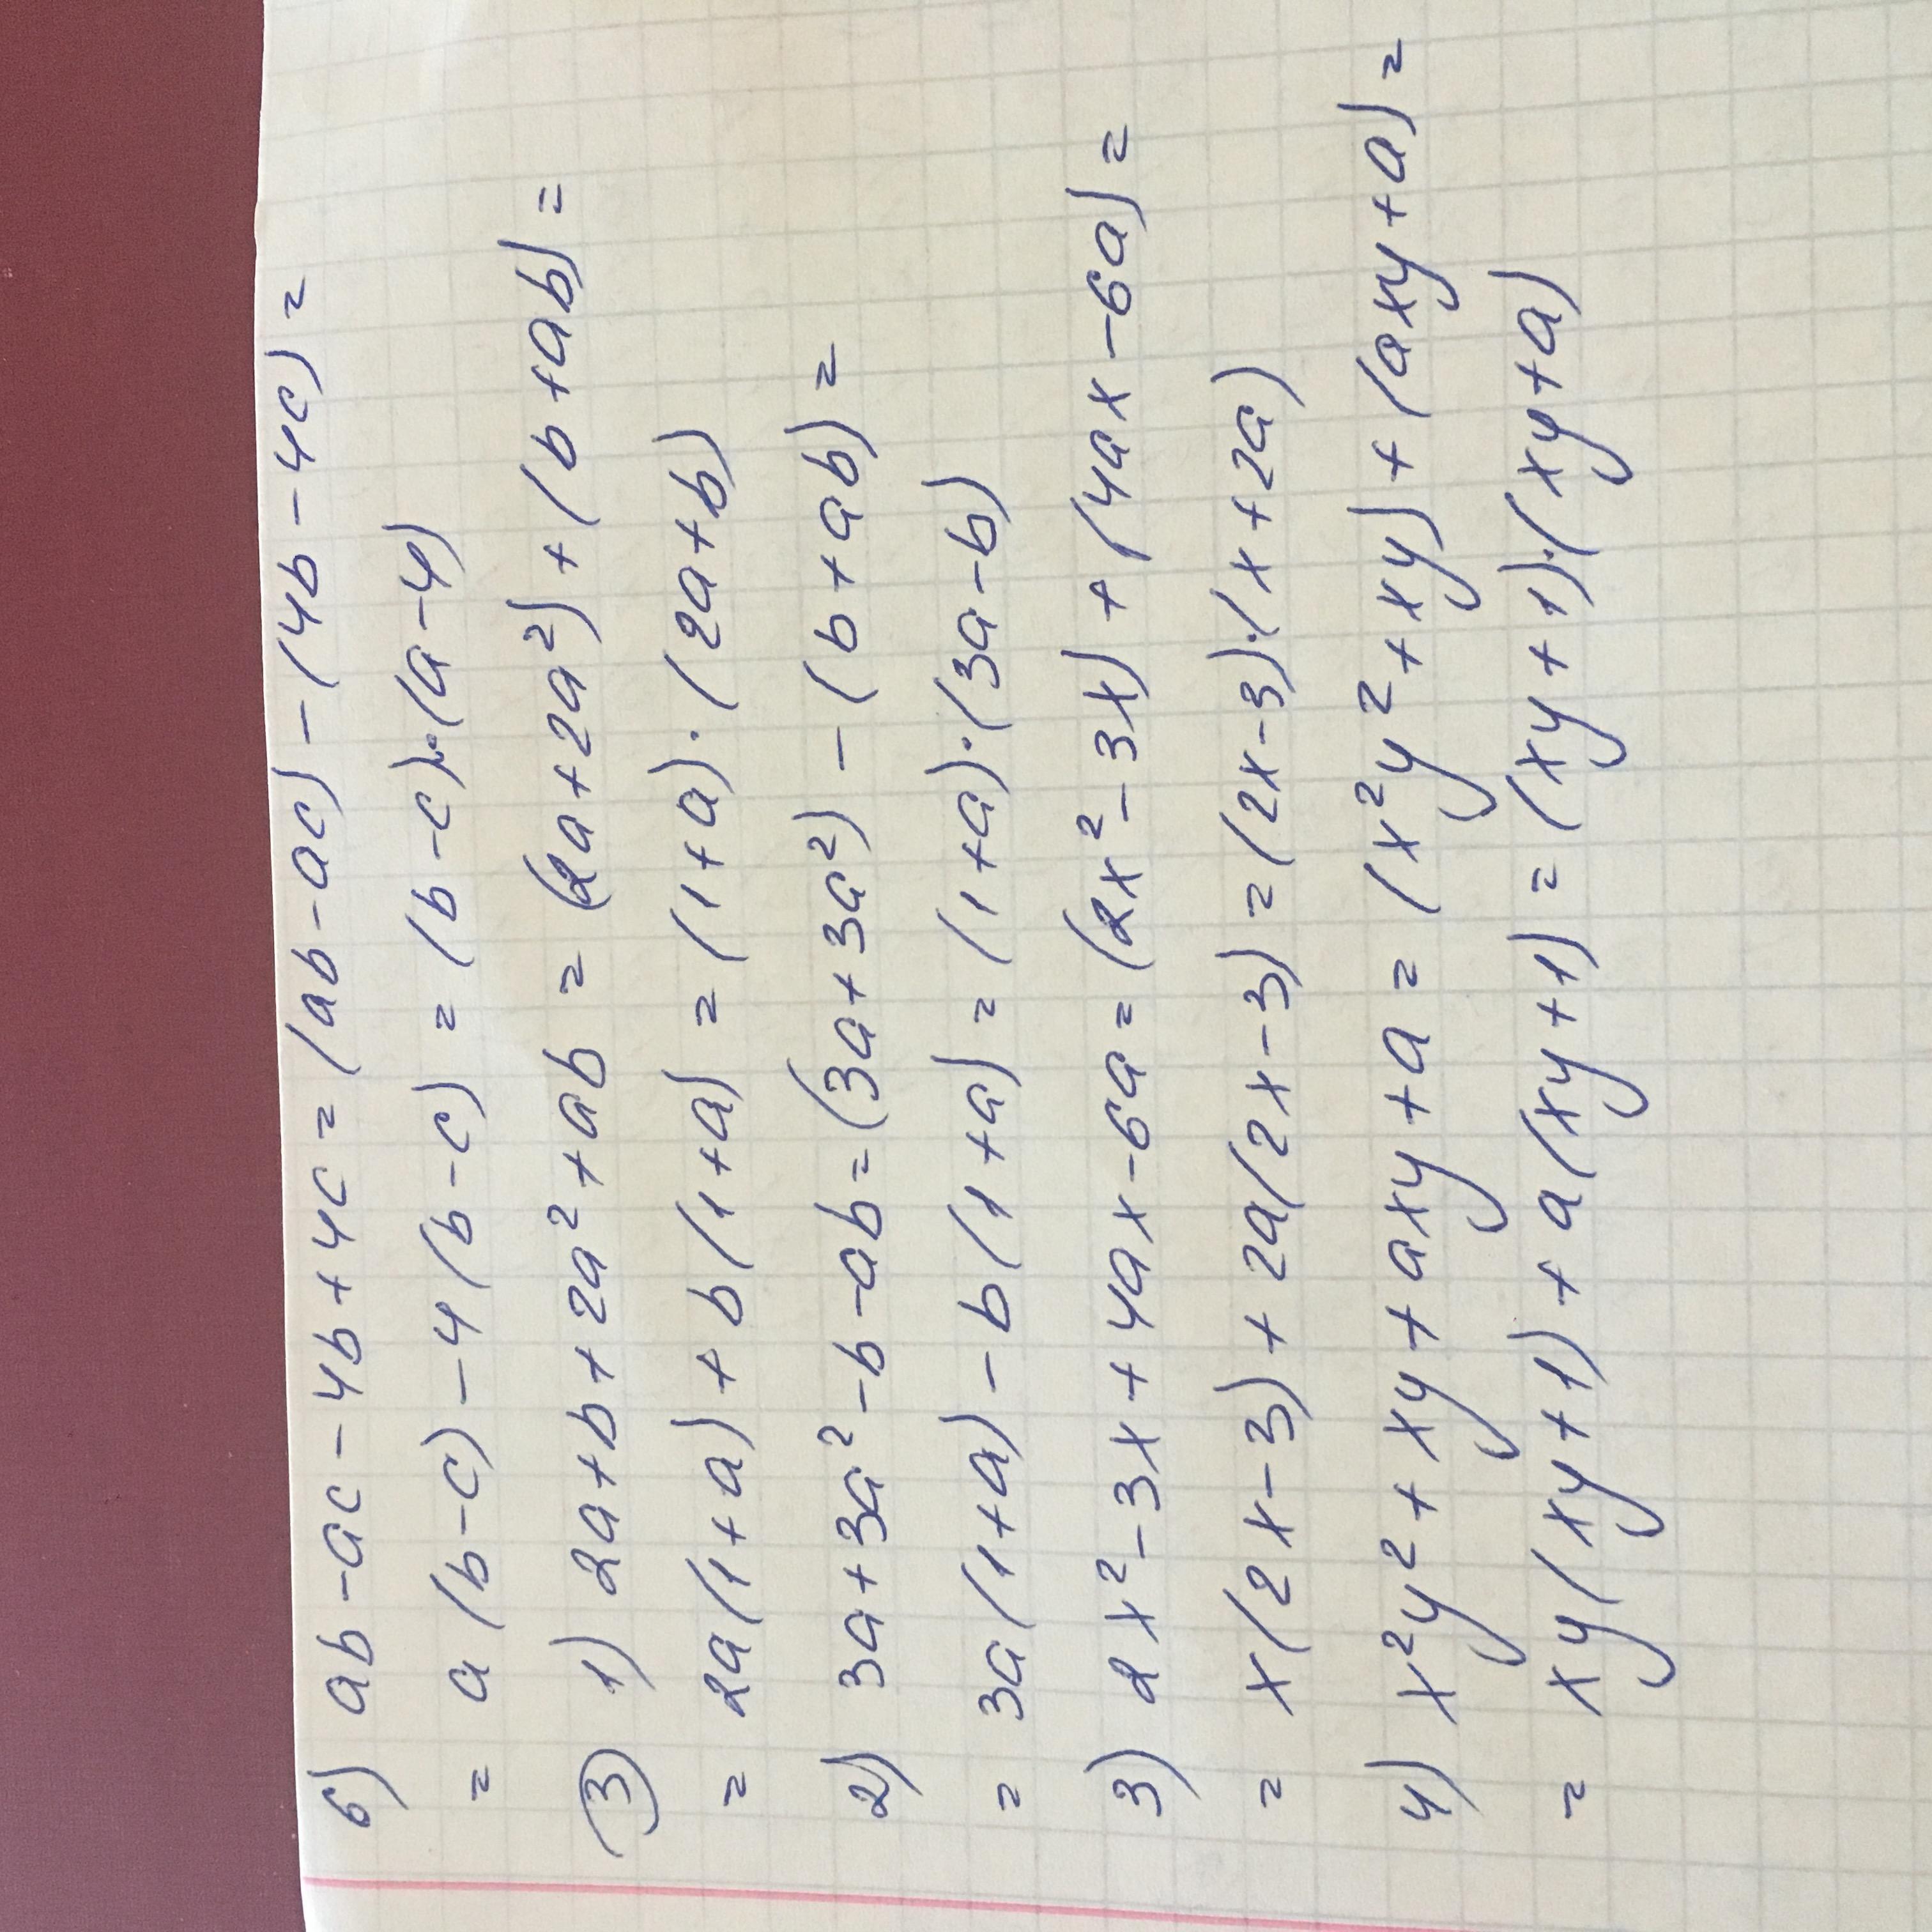 б) ab - ac - 4b + 4c = (ab - ac) - (4b - 4c) =
= a(b - c) - 4(b - c) = (b - c)·(a - 4)
③ 1) 2a + b + 2a² + ab = (2a + 2a²) + (b + ab) =
= 2a(1 + a) + b(1 + a) = (1 + a)·(2a + b)
2) 3a + 3a² - b - ab = (3a + 3a²) - (b + ab) =
= 3a(1 + a) - b(1 + a) = (1 + a)·(3a - b)
3) 2x² - 3x + 4ax - 6a = (2x² - 3x) + (4ax - 6a) =
= x(2x - 3) + 2a(2x - 3) = (2x - 3)·(x + 2a)
4) x²y² + xy + axy + a = (x²y² + xy) + (axy + a) =
= xy(xy + 1) + a(xy + 1) = (xy + 1)·(xy + a)